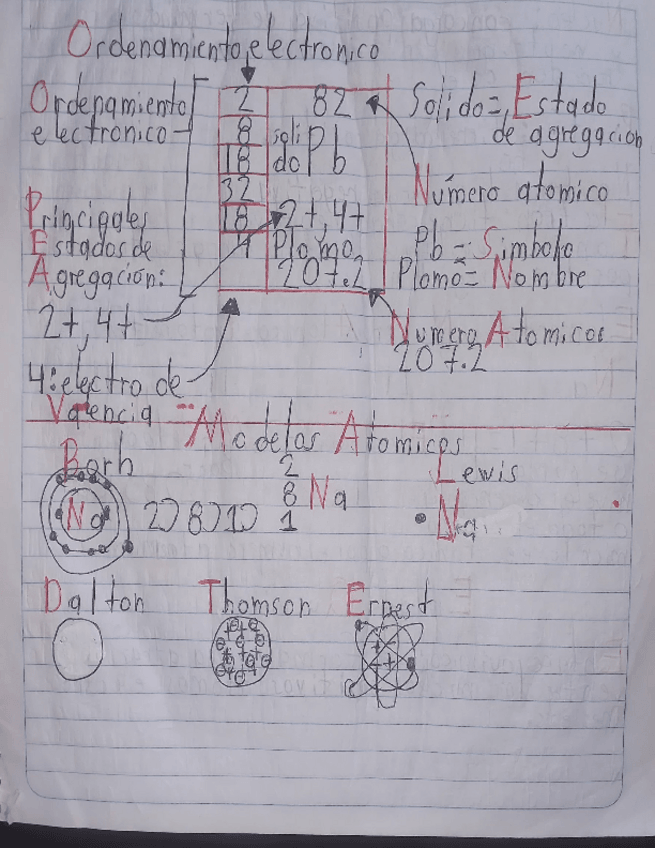 Ordenamiento electronico
Ordenamiento
electronico
2
8
18
32
18
4
82
soli
do
Pb
2+, 4+
Plomo
207.2
Solido = Estado
de agregación
Número atomico
Pb = Simbolo
Plomo = Nombre
Numero Atomicos
207.2
Principales
Estados de
Agregación:
2+, 4+
4: electro de
Valencia
Modelos Atomicos
Borh
Na
2) 8) 1)
2
8
1
Na
Lewis
Na
Dalton
Thomson
Ernest